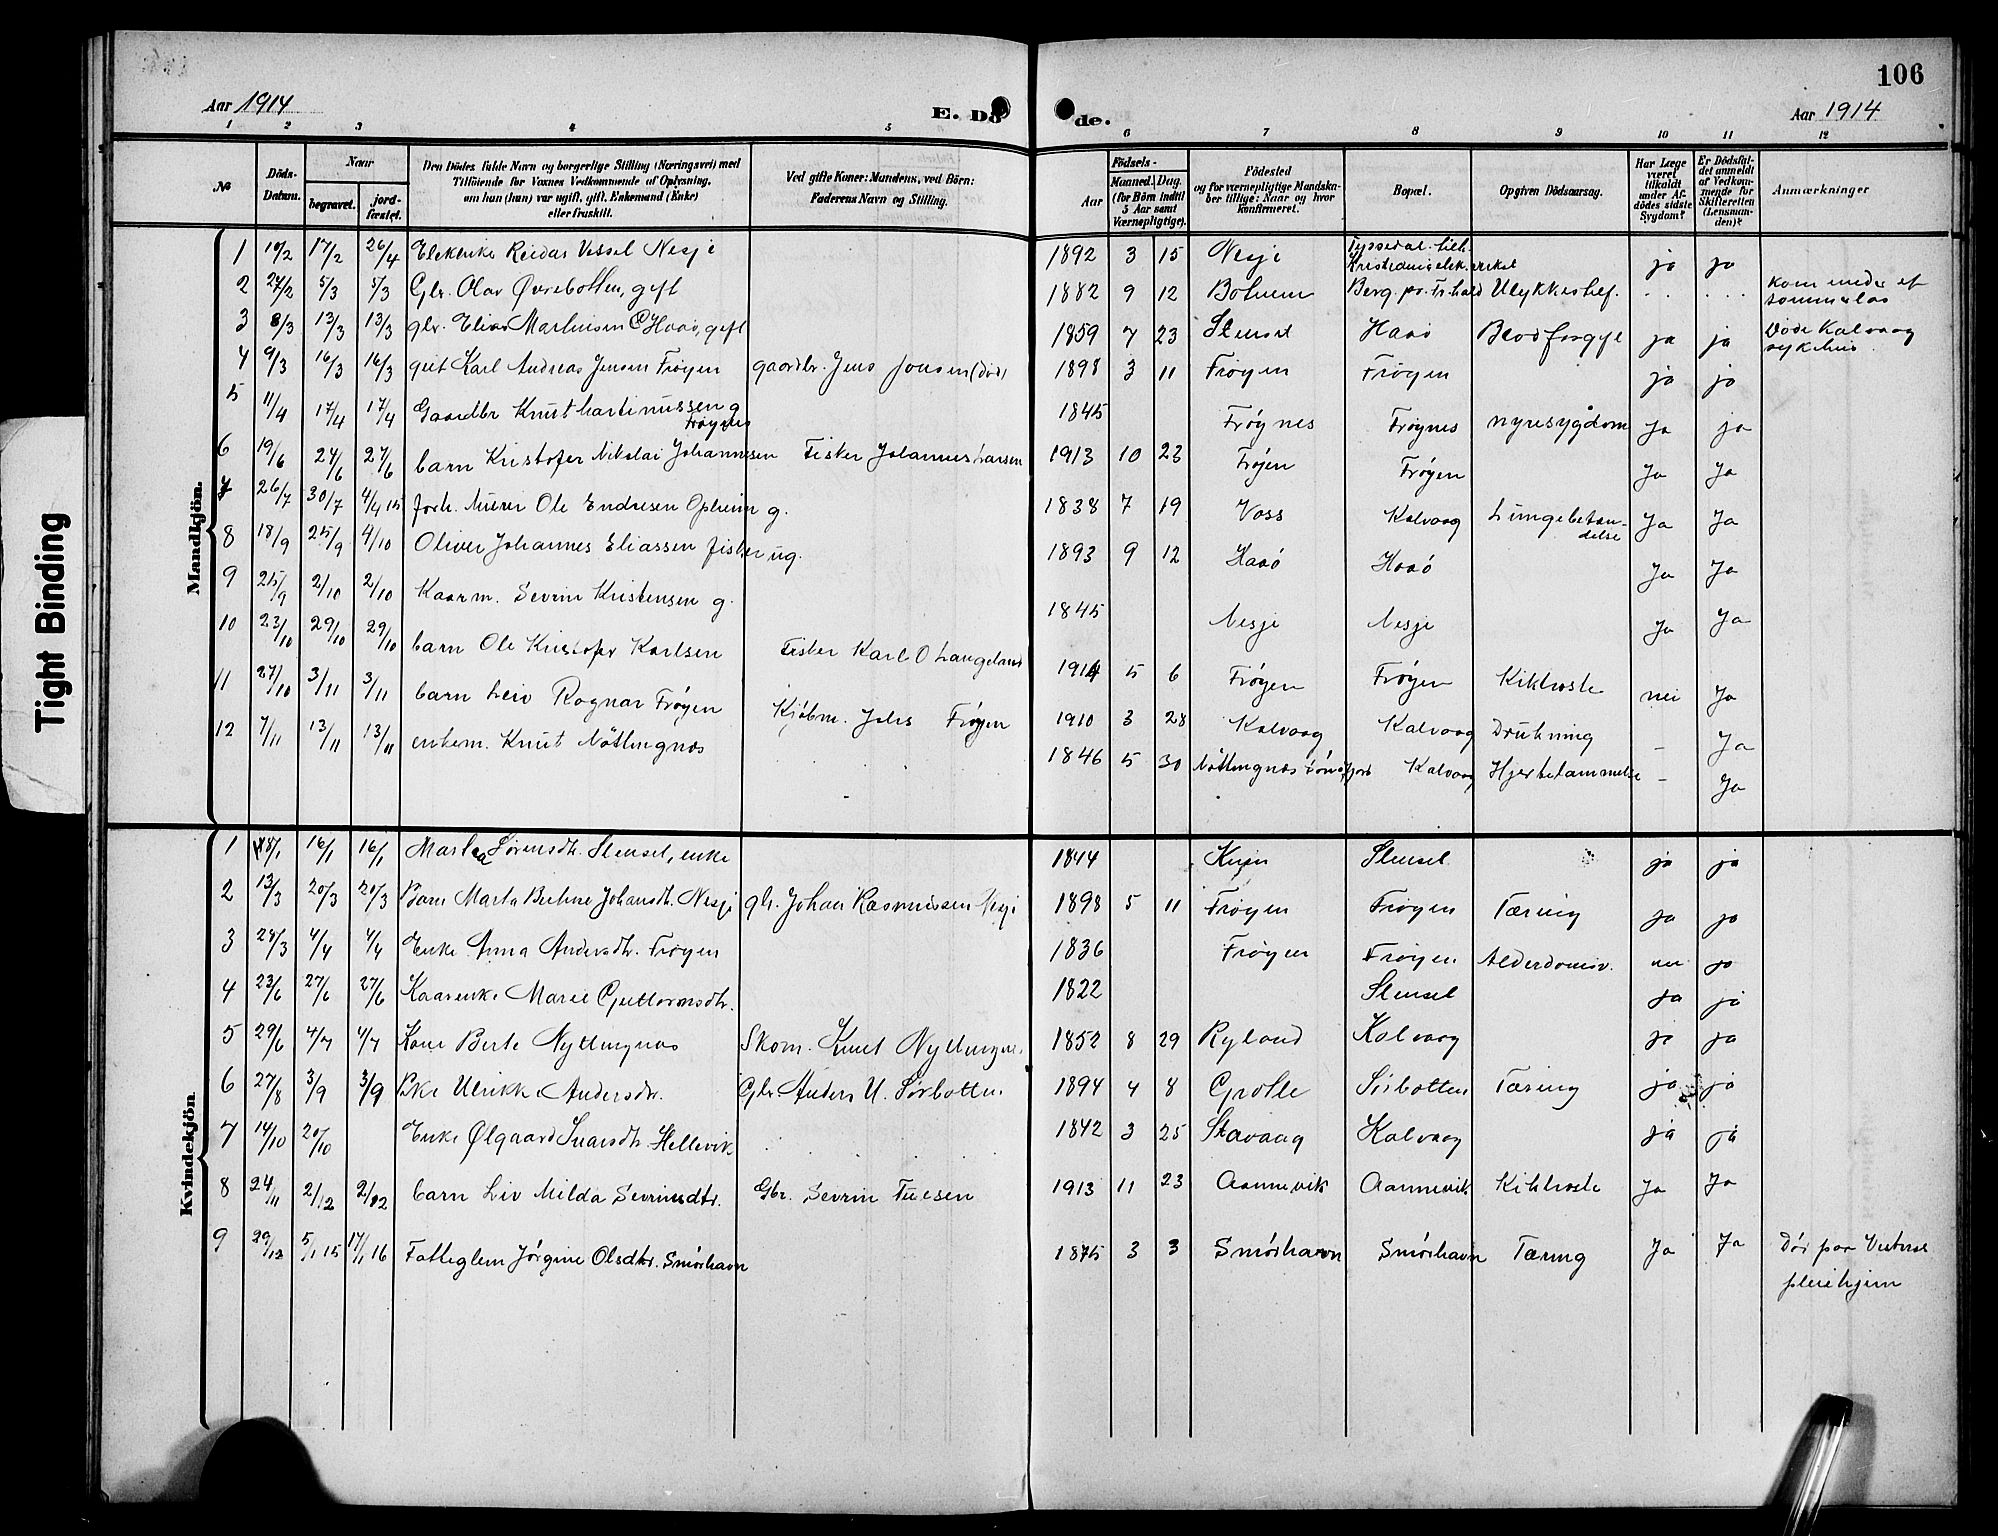 106
Aar 1914
E. Döde.
Aar 1914
1 2 3 4 5 6 7 8 9 10 11 12
№
Döds-Datum.
Naar
begravet.
jordfæstet.
Den Dödes fulde Navn og borgerlige Stilling (Næringsvei) med
Tilföiende for Voxnes Vedkommende af Oplysning,
om hun (han) var ugift, gift, Enkemand (Enke)
eller fraskilt.
Ved gifte Koner: Mandens, ved Börn:
Faderens Navn og Stilling.
Aar
Födsels-
Maaned. Dag.
(for Börn indtil
5 Aar samt
Værnepligtige).
Födested
og for værnepligtige Mandskaber tillige: Naar og hvor
konfirmeret.
Bopæl.
Opgiven Dödsaarsag.
Har Læge været tilkaldt under Afdödes sidste Sygdom?
Er Dödsfaldet anmeldt af Vedkommende for Skifteretten (Lensmanden)?
Anmærkninger
Mandkjön.
1 10/2 17/2 26/4 Reidar Vessel Nesje 1892 3 15 Nesje ja ja
2 27/2 5/3 5/3 Gbr. Olav Øvrebotten, gift 1882 9 12 Botnen Ulykkestilf.
3 8/3 13/3 13/3 gbr. Elias Martinsen Haaö, gift 1859 7 23 Stenset Haaö Blodforgift ja ja Döde Kalvaag sykehus.
4 9/3 16/3 16/3 gut Karl Andreas Jensen Fröyen gaardbr. Jens Jonsen (död) 1898 3 11 Fröyen Fröyen ja ja
5 11/4 17/4 17/4 Gaardbr Knut Martinussen g Fröynes 1845 Fröynes Fröynes nyresygdom Ja ja
6 19/6 27/6 27/6 barn Kristofer Nikolai Johannesen Fisker Johannes Larsen 1913 10 23 Fröyen Fröyen Ja Ja
7 26/7 30/7 4/4 15 forh. Murer Ole Endresen Opheim g. 1838 7 19 Voss Kalvaag Lungebetændelse Ja Ja
8 18/9 25/9 4/10 Oliver Johannes Eliassen fisker ug. 1893 9 12 Haaö Haaö Ja Ja
9 25/9 2/10 2/10 Kaarm. Sevrin Kristensen g. 1845 Nesje Nesje Ja Ja
10 23/10 29/10 29/10 barn Ole Kristofer Karlsen Fisker Karl O Langeland 1914 5 6 Fröyen Fröyen Kikhoste nei Ja
11 27/10 3/11 3/11 barn Leiv Ragnar Fröyen Kjöbm. Johs Fröyen 1910 3 28 Kalvaag Kalvaag Drukning - Ja
12 7/11 13/11 13/11 enkem. Knut Nöttingnæs 1846 5 30 Nöttingnæs Kalvaag Hjertelammelse - Ja
Kvindekjön.
1 8/1 16/1 16/1 Marta Sörensdtr. Stensel, enke 1844 Stensel ja ja
2 13/3 20/3 20/3 Barn Marta Johansdtr. Nesje gbr. Johan Rasmussen Nesje 1898 5 11 Fröyen Fröyen Tæring ja ja
3 28/3 4/4 4/4 Enke Anna Andersdtr. Fröyen 1836 Fröyen Fröyen Alderdomsv. nei ja
4 23/6 27/6 27/6 Kaarenke Marie Guttormsdtr. 1822 Stensel ja ja
5 29/6 4/7 4/7 Kone Berte Nyttingnæs Skom. Knut Nyttingnæs 1852 8 29 Ryland Kalvaag ja ja
6 27/8 3/9 3/9 Pike Ulrikke Andersdtr. Gbr. Anders U. Sörbotten 1894 4 8 Grotle Sörbotten Tæring ja ja
7 14/10 20/10 Enke Ølgaard Ivarsdtr. Hellevik 1842 3 25 Stavaag Kalvaag ja ja
8 24/11 2/12 2/12 barn Liv Milda Sevrinsdtr. Gbr. Sevrin Tuesen 1913 11 23 Aannevik Aannevik Kikhoste Ja Ja
9 29/12 5/1 15 17/1 16 Fattiglem Jörgine Olsdtr. Smörhavn 1875 3 3 Smörhavn Smörhavn Tæring Ja Ja Död paa
pleiehjem
Tight Binding